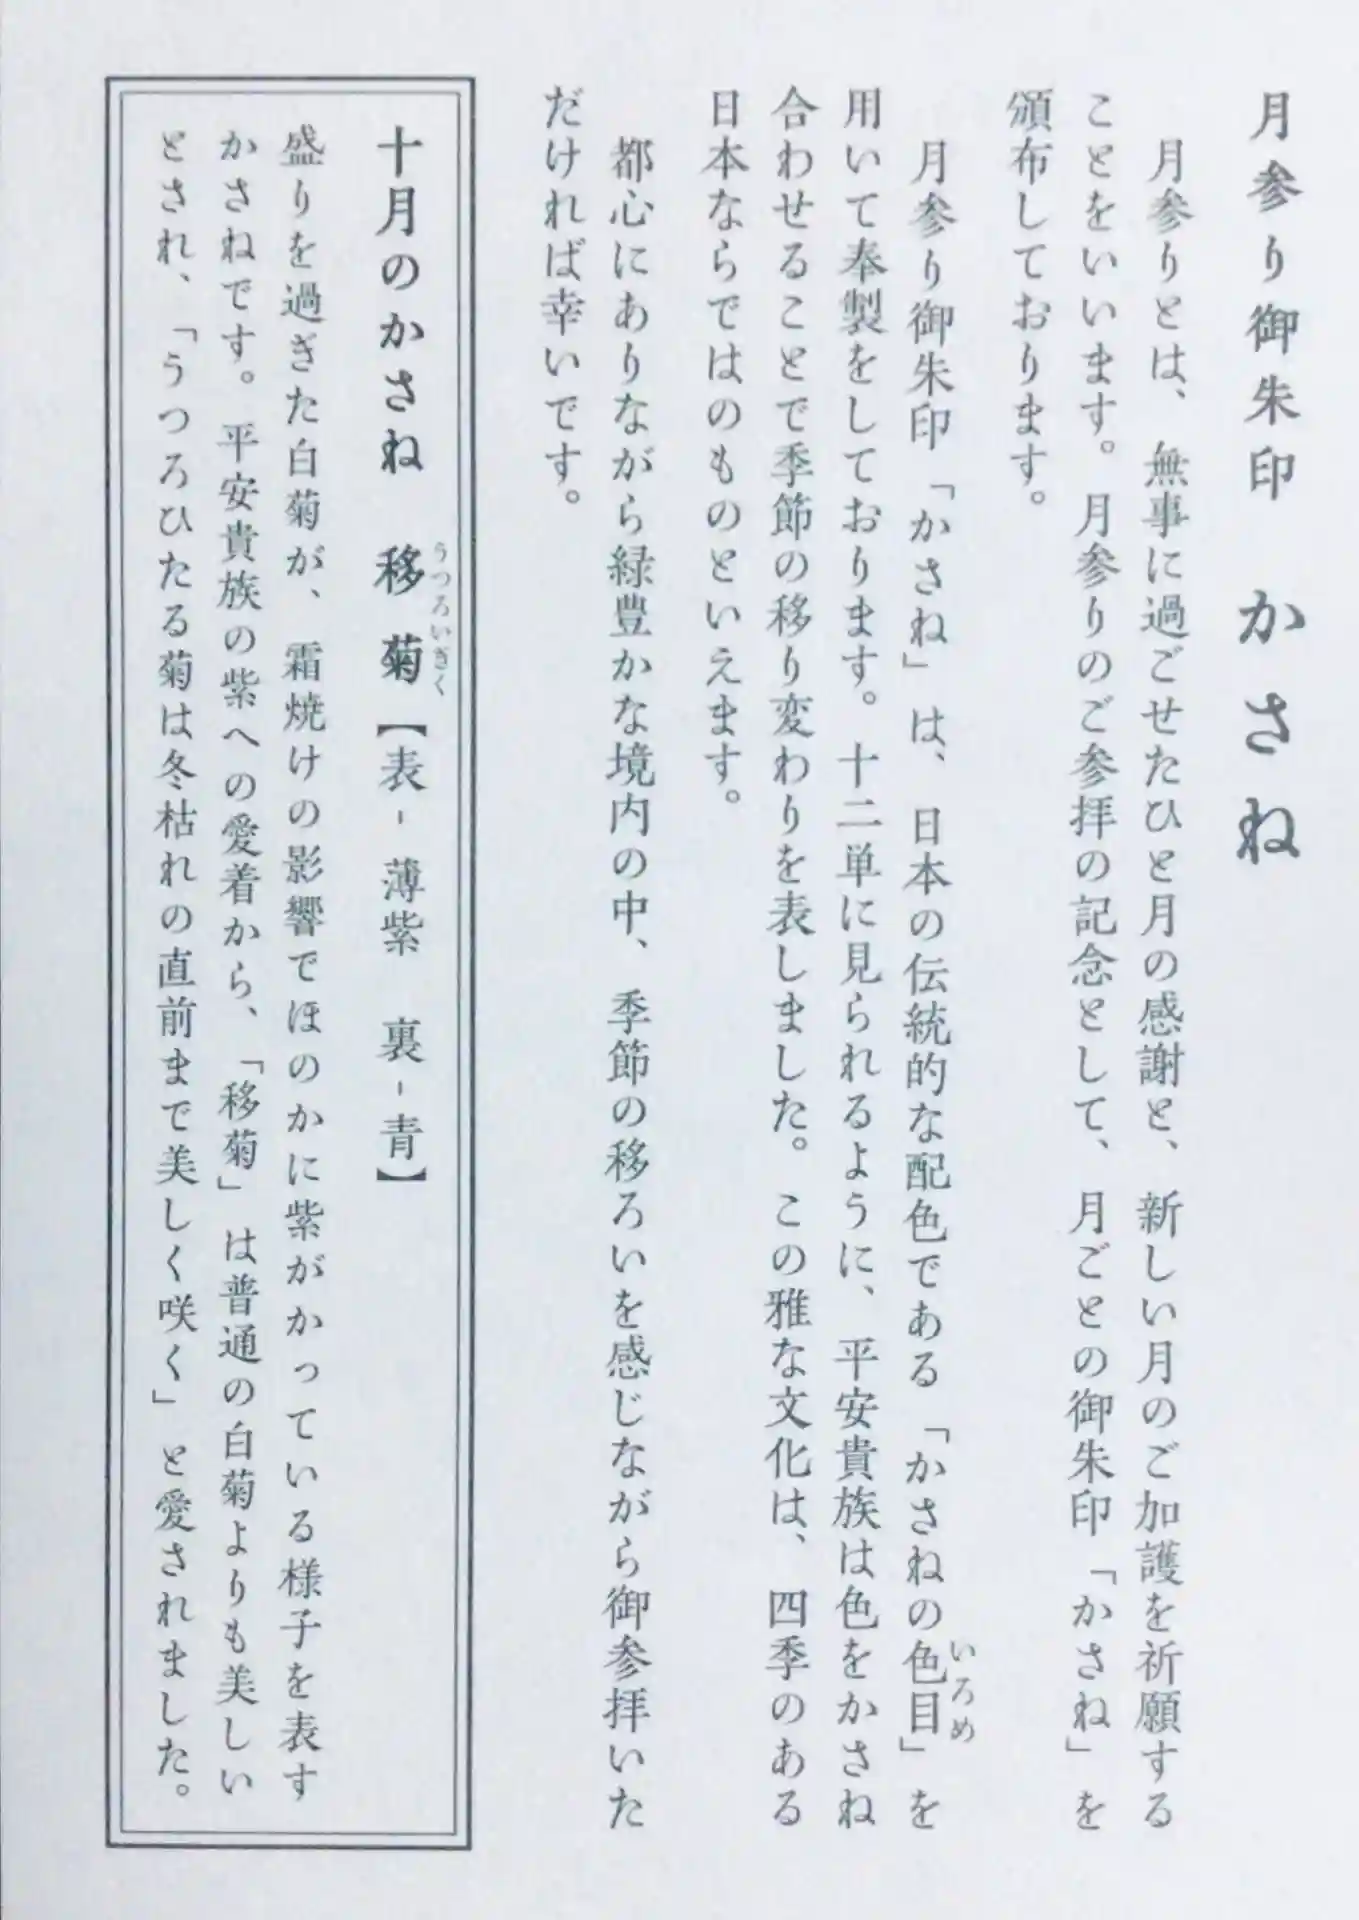 月参り御朱印　かさね
月参りとは、無事に過ごせたひと月の感謝と、新しい月のご加護を祈願する
ことをいいます。月参りのご参拝の記念として、月ごとの御朱印「かさね」を
頒布しております。
月参り御朱印「かさね」は、日本の伝統的な配色である「かさねの色目」を
いろめ
用いて奉製をしております。十二単に見られるように、平安貴族は色をかさね
合わせることで季節の移り変わりを表しました。この雅な文化は、四季のある
日本ならではのものといえます。
都心にありながら緑豊かな境内の中、季節の移ろいを感じながら御参拝いた
だければ幸いです。
十月のかさね　移菊【表-薄紫　裏-青】
うつろいぎく
盛りを過ぎた白菊が、霜焼けの影響でほのかに紫がかっている様子を表す
かさねです。平安貴族の紫への愛着から、「移菊」は普通の白菊よりも美しい
とされ、「うつろひたる菊は冬枯れの直前まで美しく咲く」と愛されました。